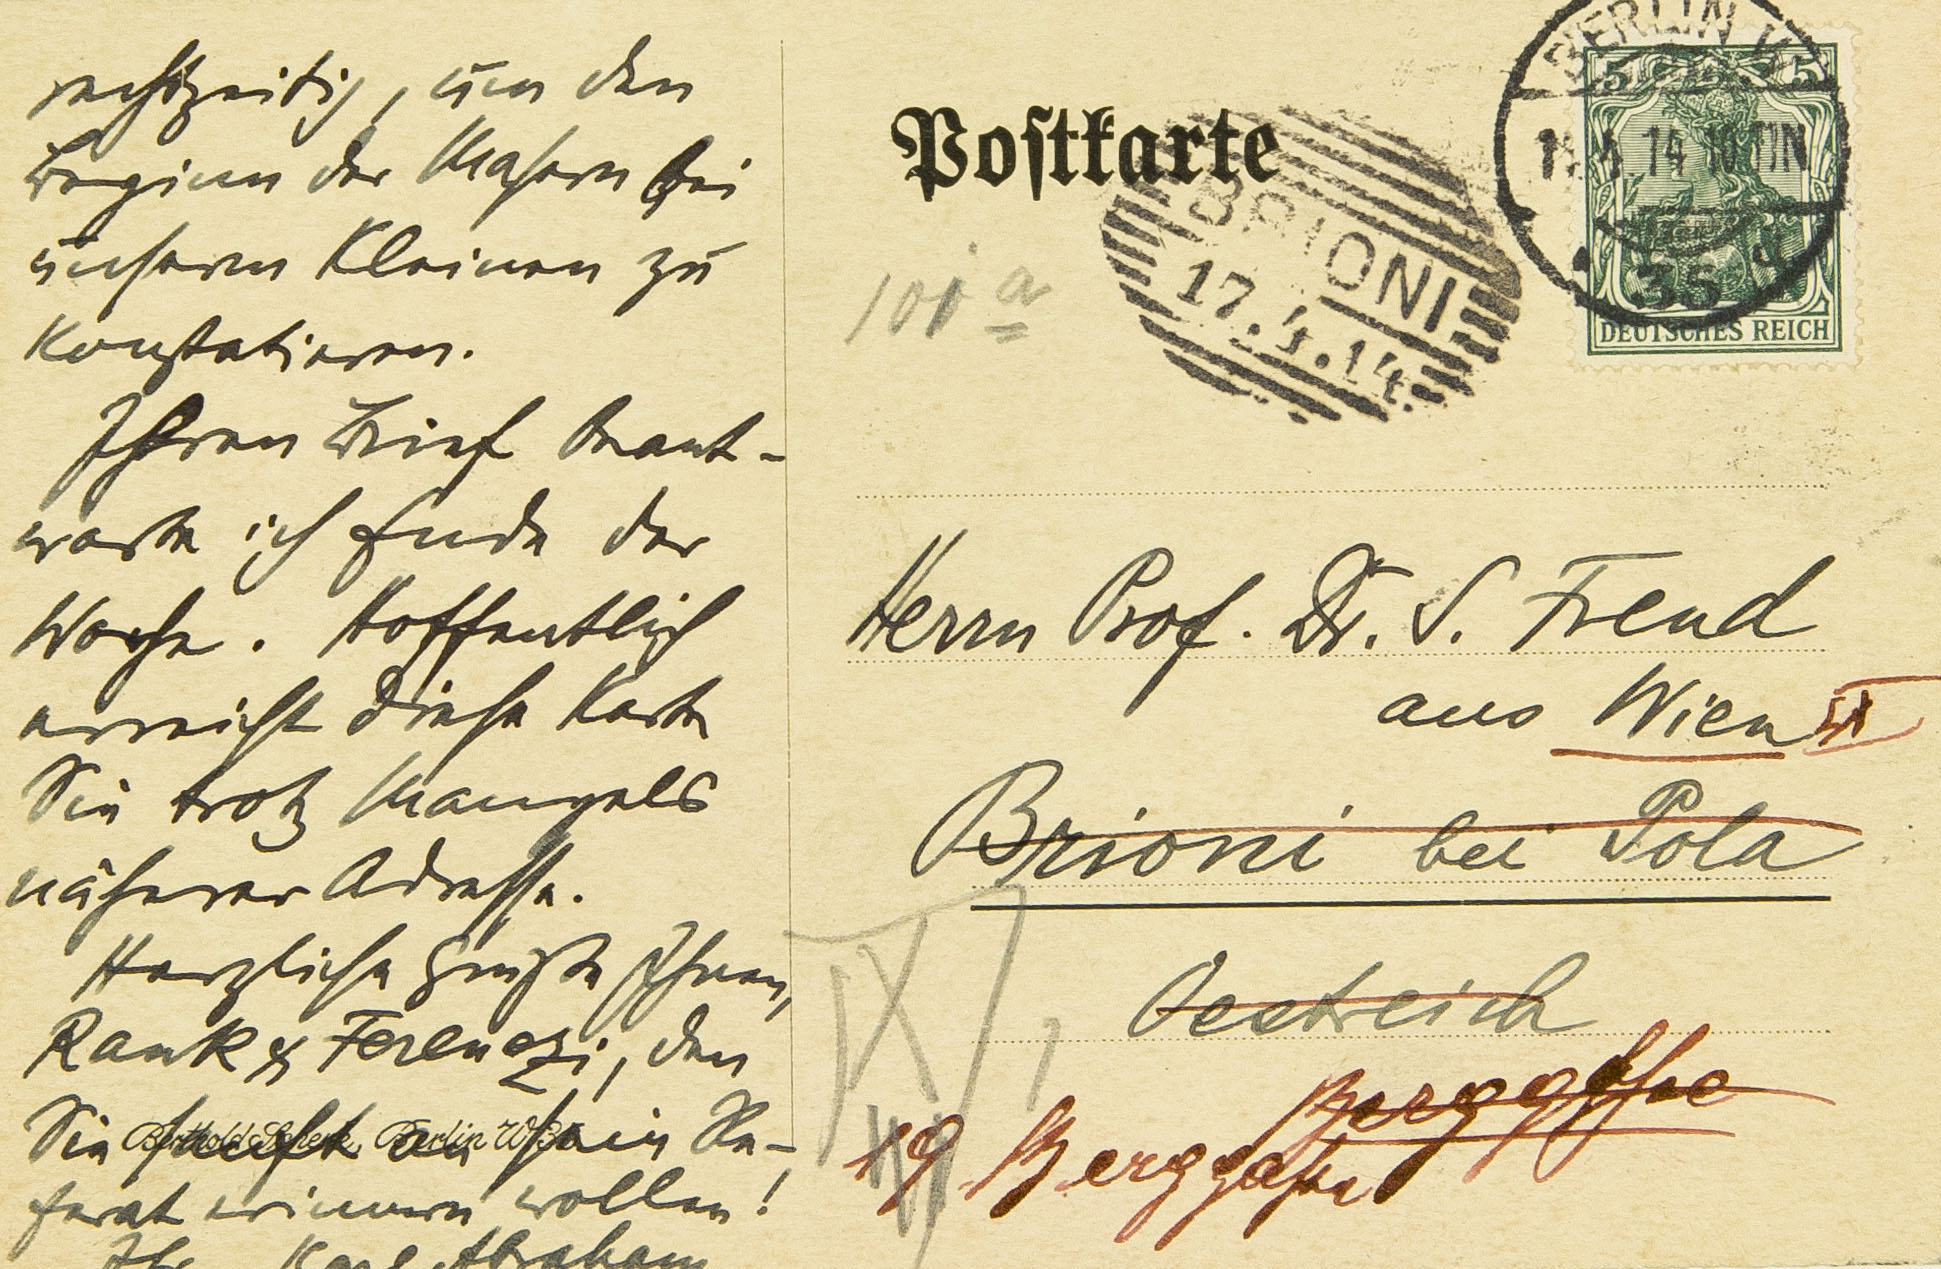 rechtzeitig, um den
Beginn der Masern bei
unserm Kleinen zu
konstatieren.
Ihren Brief beant-
worte ich Ende der
Woche. Hoffentlich
erreicht diese Karte
Sie trotz Mangels
näherer Adresse.
Herzliche Grüße Ihnen,
Rank & Ferenczi, den
Sie sanft an sein Re-
ferat erinnern wollen!
Ihr Karl Abraham
Berthold Schenk, Berlin W
Postkarte
101 a
BRIONI
17.4.14
BERLIN W.
14 10-11N
35
5 5
DEUTSCHES REICH
Herrn Prof. Dr. S. Freud
aus Wien
Brioni bei Pola
Oestreich
IX
Berggasse
19 Berggasse